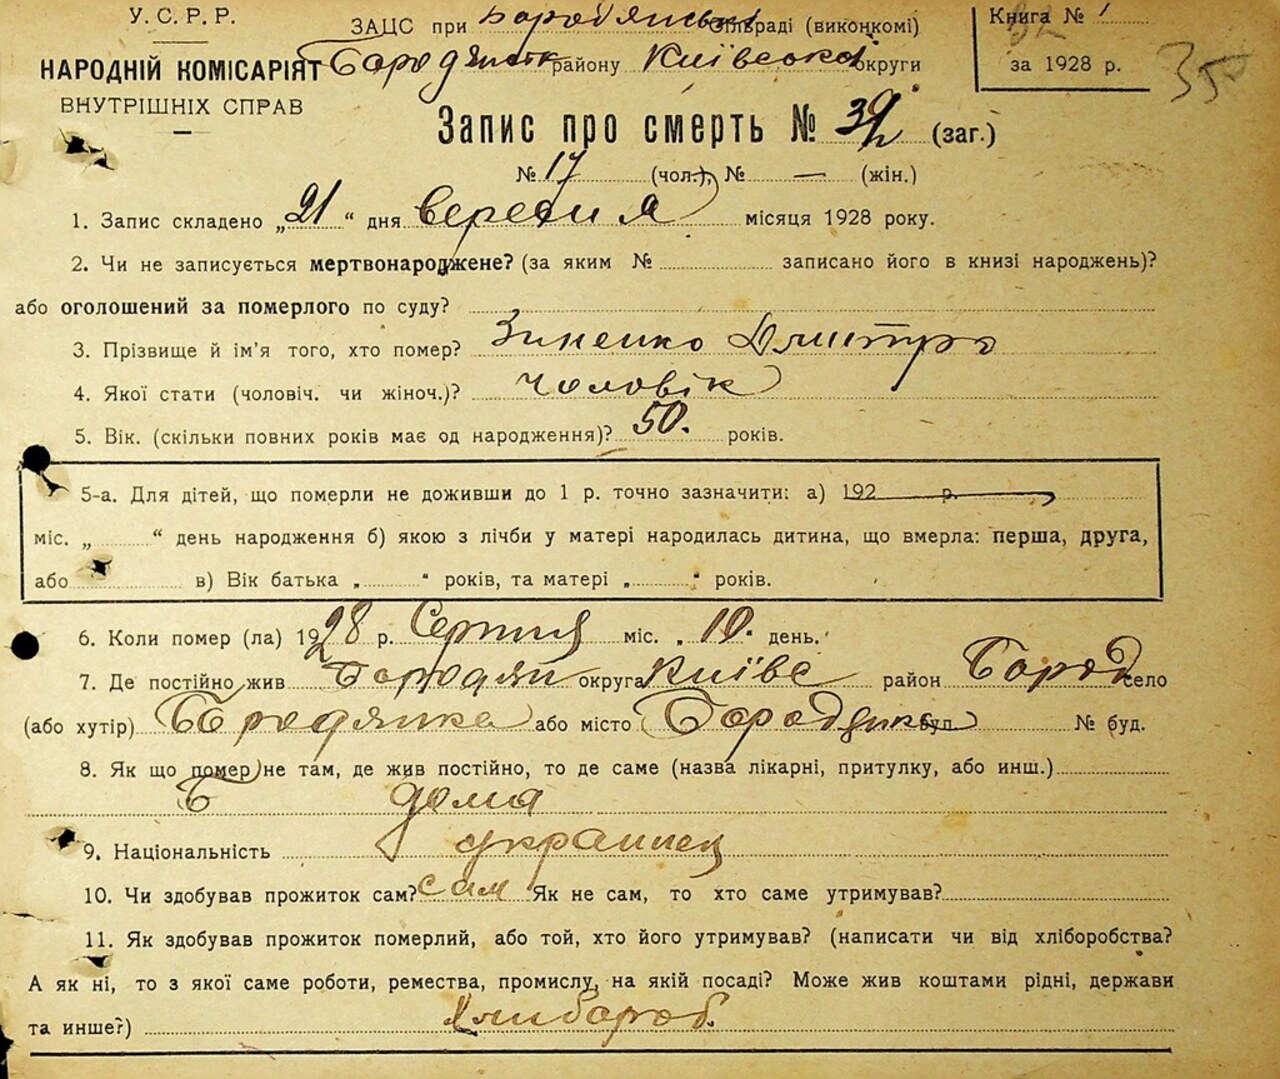 У. С. Р. Р.
НАРОДНІЙ КОМІСАРІЯТ
ВНУТРІШНІХ СПРАВ
ЗАЦС при Бородянські Сільраді (виконкомі)
Бородянськ району Київської округи
Книга № 1
за 1928 р.
35
Запис про смерть № 39 (заг.)
№ 17 (чол.), № — (жін.)
1. Запис складено „21“ дня вересня місяця 1928 року.
2. Чи не записується мертвонароджене? (за яким № записано його в книзі народжень)?
або оголошений за померлого по суду?
3. Прізвище й ім'я того, хто помер? Зиненко Дмитро
4. Якої стати (чоловіч. чи жіноч.)? чоловік
5. Вік. (скільки повних років має од народження)? 50. років.
5-а. Для дітей, що померли не доживши до 1 р. точно зазначити: а) 192 р.
міс. „ “ день народження б) якою з лічби у матері народилась дитина, що вмерла: перша, друга,
або в) Вік батька „ “ років, та матері „ “ років.
6. Коли помер (ла) 1928 р. Серпня міс. „10. день.
7. Де постійно жив Бородян округа Київс район Бород село
(або хутір) Бородянка або місто Бородянка вул. № буд.
8. Як що помер не там, де жив постійно, то де саме (назва лікарні, притулку, або инш.)
дома
9. Національність украинец
10. Чи здобував прожиток сам? сам Як не сам, то хто саме утримував?
11. Як здобував прожиток померлий, або той, хто його утримував? (написати чи від хліборобства?
А як ні, то з якої саме роботи, ремества, промислу, на якій посаді? Може жив коштами рідні, держави
та инше?) Хлибороб.